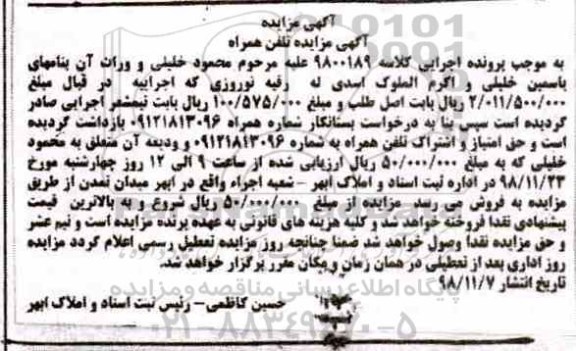 آگهی مزایده
آگهی مزایده تلفن همراه
به موجب پرونده اجرایی کلاسه ۹۸۰۰۱۸۹ علیه مرحوم محمود خلیلی و وراث آن بنامهای
یاسمین خلیلی و اکرم الملوک اسدی له رقیه نوروزی که اجراییه در قبال مبلغ
۲/۰۱۱/۵۰۰/۰۰۰ ریال بابت اصل طلب و مبلغ ۱۰۰/۵۷۵/۰۰۰ ریال بابت نیمعشر اجرایی صادر
گردیده است سپس بنا به درخواست بستانکار شماره همراه ۰۹۱۲۱۸۱۳۰۹۶ بازداشت گردیده
است و حق امتیاز و اشتراک تلفن همراه به شماره ۰۹۱۲۱۸۱۳۰۹۶ و ودیعه آن متعلق به محمود
خلیلی که به مبلغ ۵۰/۰۰۰/۰۰۰ ریال ارزیابی شده از ساعت ۹ الی ۱۲ روز چهارشنبه مورخ
۹۸/۱۱/۲۳ در اداره ثبت اسناد و املاک ابهر – شعبه اجراء واقع در ابهر میدان تمدن از طریق
مزایده به فروش می رسد مزایده از مبلغ ۵۰/۰۰۰/۰۰۰ ریال شروع و به بالاترین قیمت
پیشنهادی نقدا فروخته خواهد شد و کلیه هزینه های قانونی به عهده برنده مزایده است و نیم عشر
و حق مزایده نقدا وصول خواهد شد ضمنا چنانچه روز مزایده تعطیل رسمی اعلام گردد مزایده
روز اداری بعد از تعطیلی در همان زمان و مکان مقرر برگزار خواهد شد.
تاریخ انتشار ۹۸/۱۱/۷
حسین کاظمی – رئیس ثبت اسناد و املاک ابهر
پایگاه اطلاع رسانی مناقصه و مزایده
۰۲۱-۸۸۳۴۹۶۷۰-۵